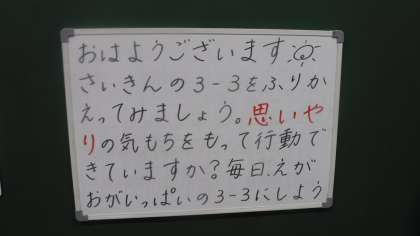 おはようございます
さいきんの3-3をふりか
えってみましょう。思いや
りの気もちをもって行動で
きていますか?毎日、えが
おがいっぱいの3-3にしよう